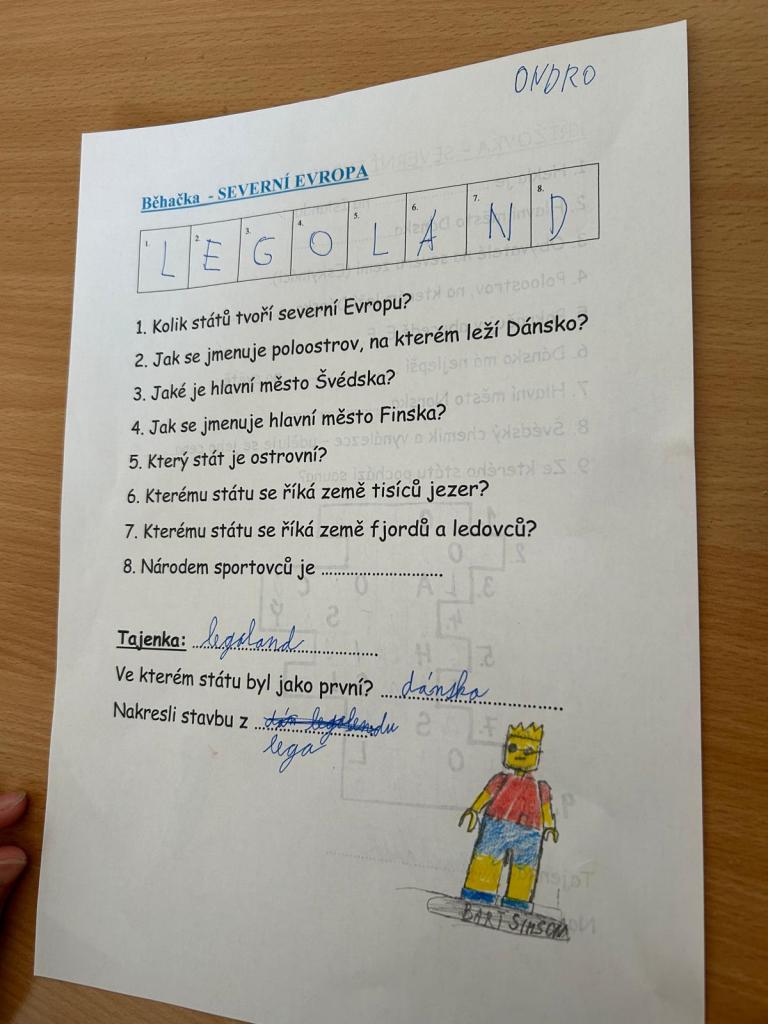 ONDRO
Běhačka - SEVERNÍ EVROPA
1. L 2. E 3. G 4. O 5. L 6. A 7. N 8. D
1. Kolik států tvoří severní Evropu?
2. Jak se jmenuje poloostrov, na kterém leží Dánsko?
3. Jaké je hlavní město Švédska?
4. Jak se jmenuje hlavní město Finska?
5. Který stát je ostrovní?
6. Kterému státu se říká země tisíců jezer?
7. Kterému státu se říká země fjordů a ledovců?
8. Národem sportovců je ............................
Tajenka: legoland
Ve kterém státu byl jako první? dánsko
Nakresli stavbu z
lega
BART SIMSON